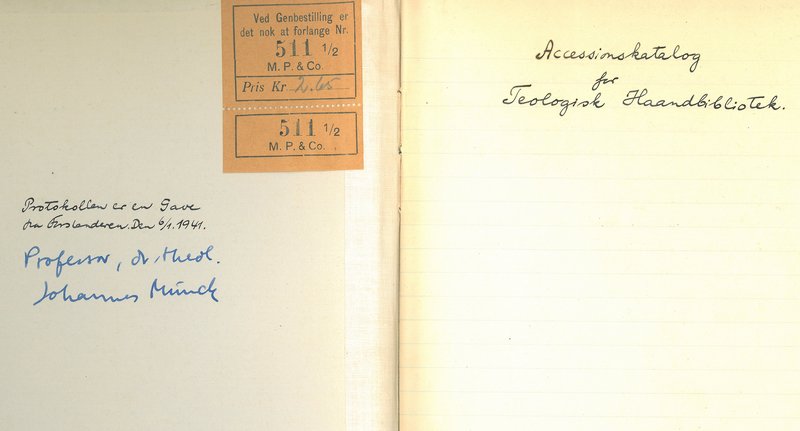 Ved Genbestilling er
det nok at forlange Nr.
511 1/2
M. P. & Co.
Pris Kr 2.65
511 1/2
M. P. & Co.
Protokollen er en Gave
fra Forstanderen. Den 6/1. 1941.
Professor, dr. theol.
Johannes Munck
Accessionskatalog
for
Teologisk Haandbibliotek.